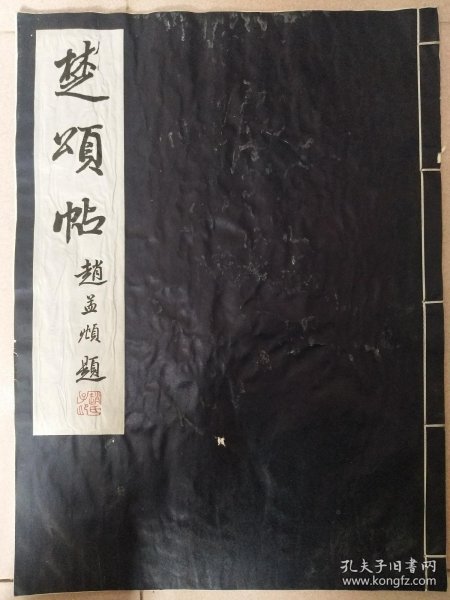 楚頌帖
趙孟頫題
孔夫子旧书网
www.kongfz.com